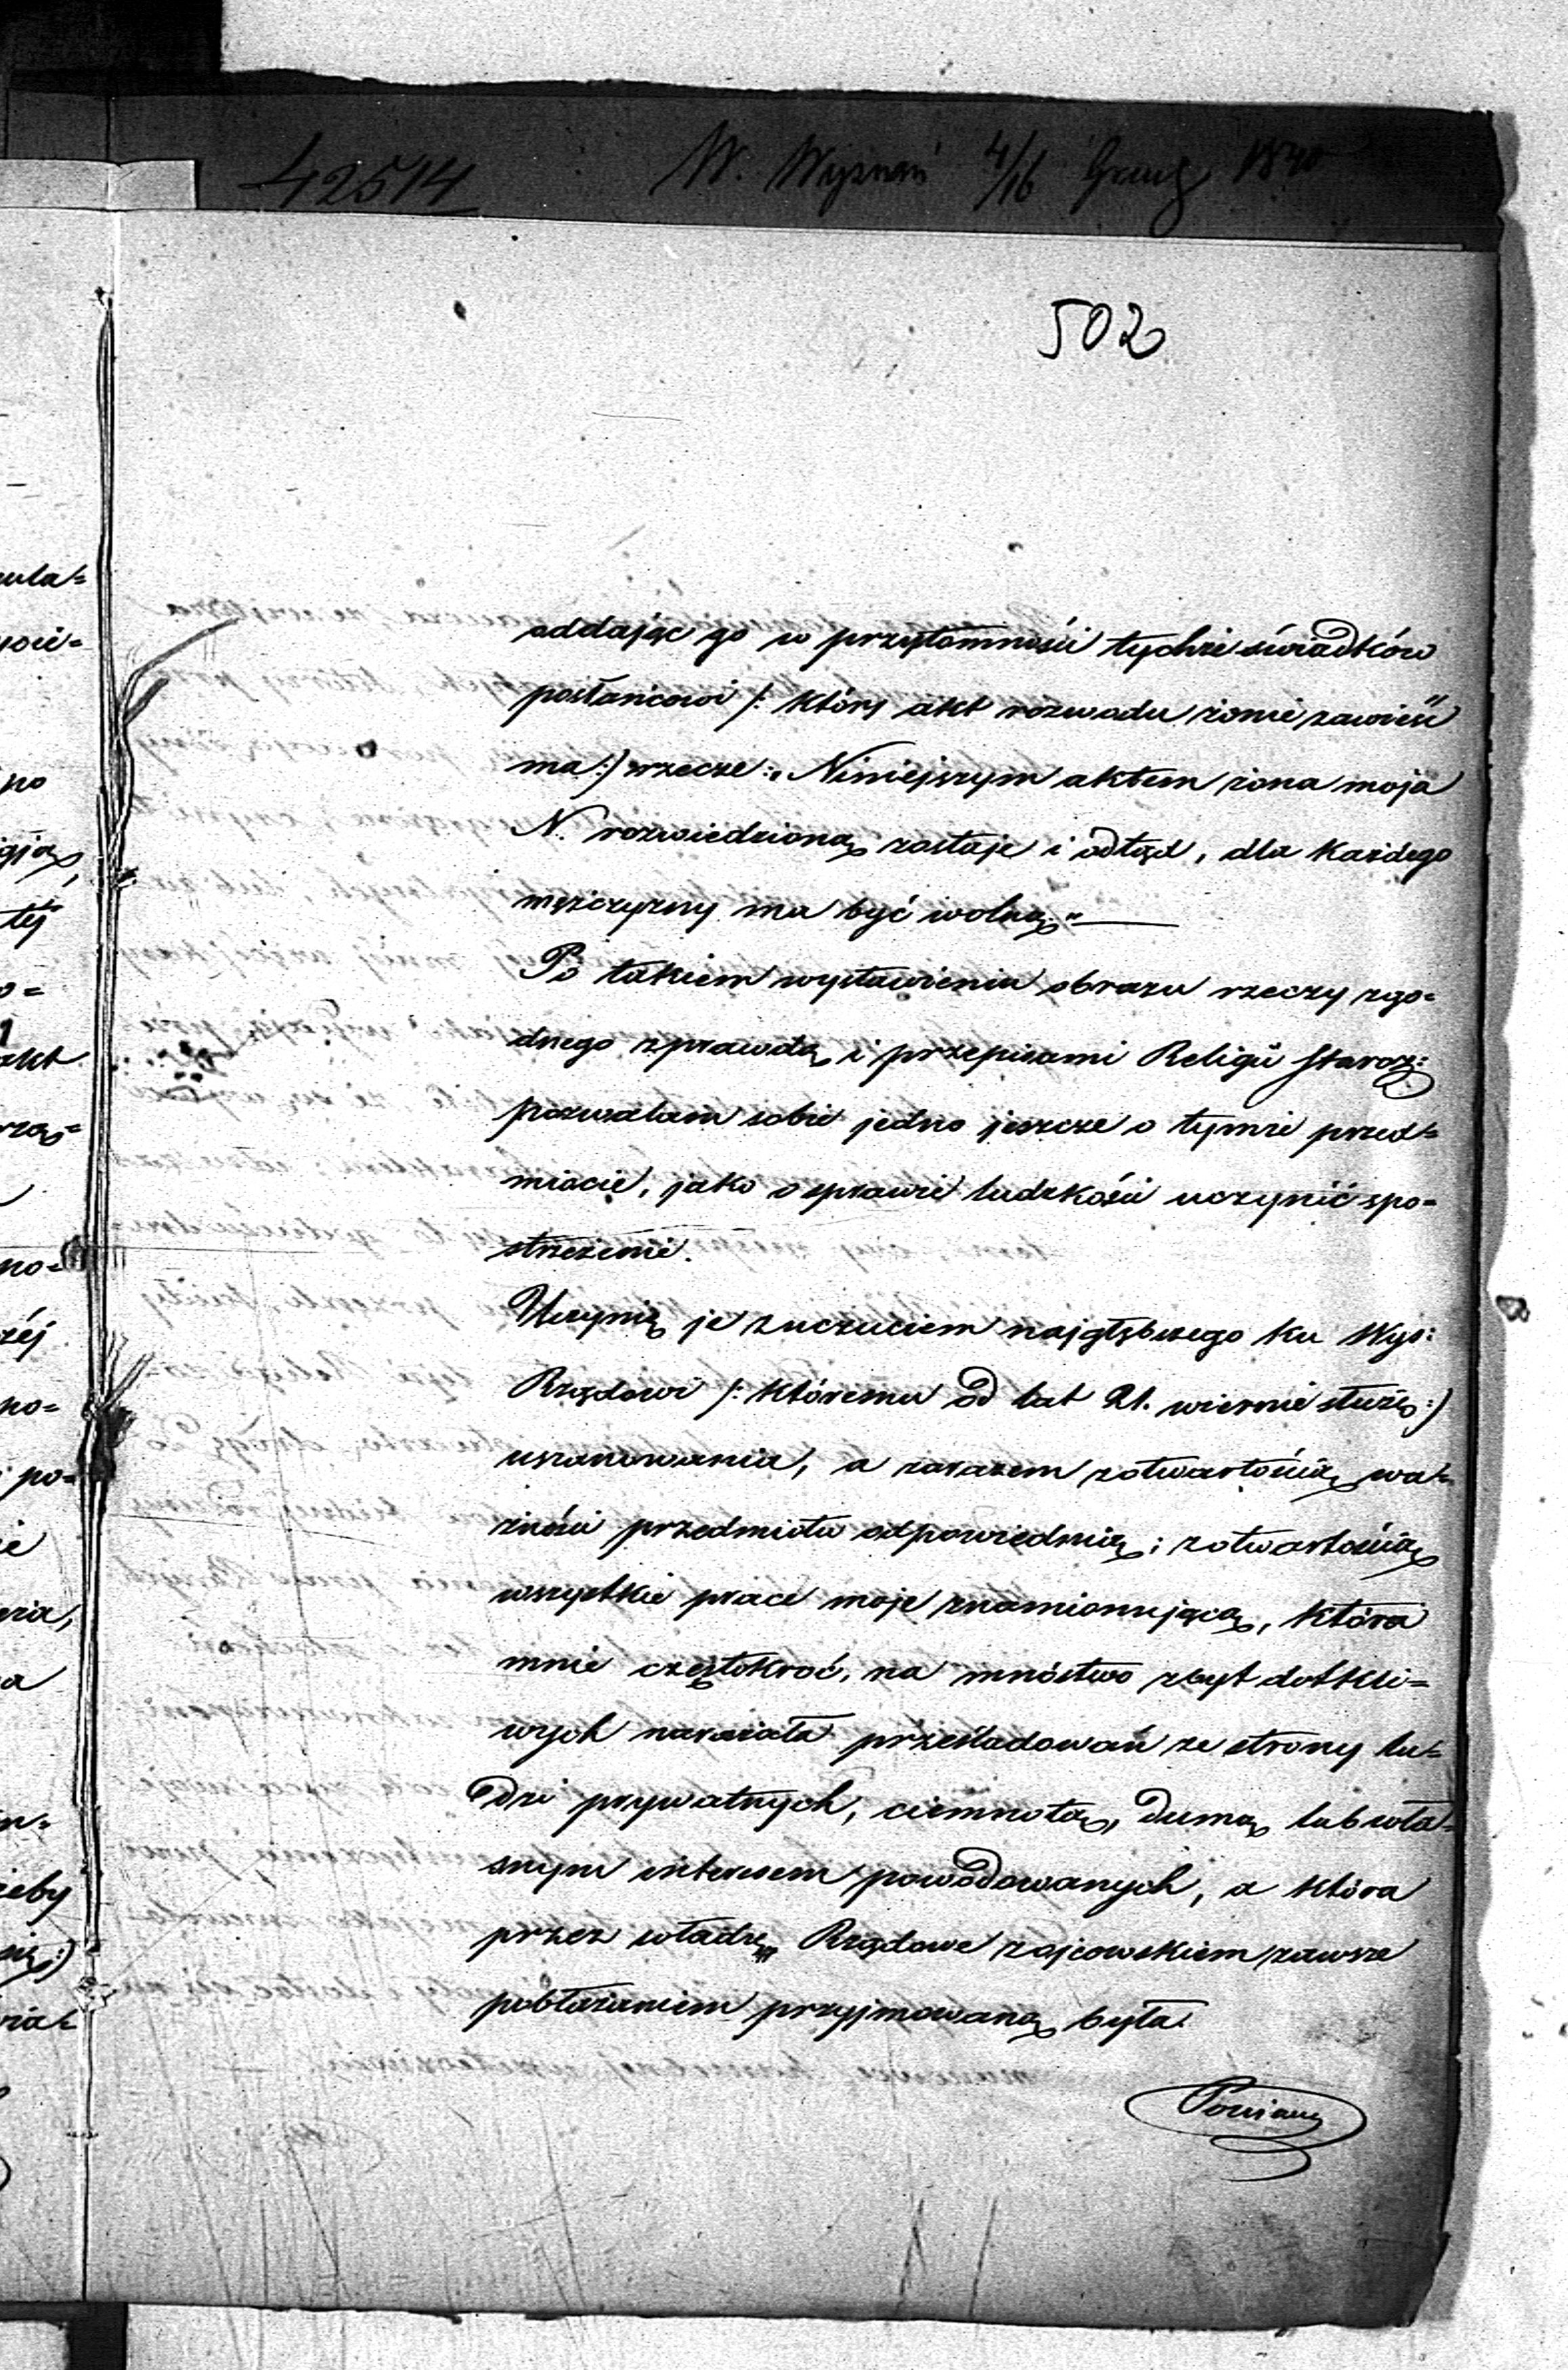 42514 W. Wyznań 4/16 Grud 1840
502
oddając go w przytomności tychże świadków
posłańcowi /: który akt rozwodu żonie zawieść
ma:/ rzecze: „Niniejszym aktem żona moja
N. rozwiedzioną zostaje i odtąd, dla każdego
mężczyzny ma być wolną."
Po takiem wystawieniu obrazu rzeczy zgo=
dnego z prawdą i przepisami Religii Staroz:
pozwalam sobie jedno jeszcze o tymże przed=
miocie, jako o sprawie ludzkości uczynić spo=
strzeżenie.
Uczynię je z uczuciem najgłębszego ku Wys:
Rządowi /: któremu od lat 21. wiernie służę:/
uszanowania, a zarazem z otwartością wa=
żności przedmiotu odpowiednią; z otwartością
wszystkie prace moje znamionującą, która
mnie częstokroć, na mnóstwo zbyt dotkli=
wych narażała prześladowań ze strony lu=
dzi prywatnych, ciemnotą, dumą lub wła=
snym interesem powodowanych, a która
przez władze Rządowe z ojcowskiem zawsze
pobłażaniem przyjmowaną była.
ula=
wie=
po
gją,
téj
o=
akt
rzą=
no=
zéj
no=
po=
ie
nia,
a
n=
żeby
się:/
nia=